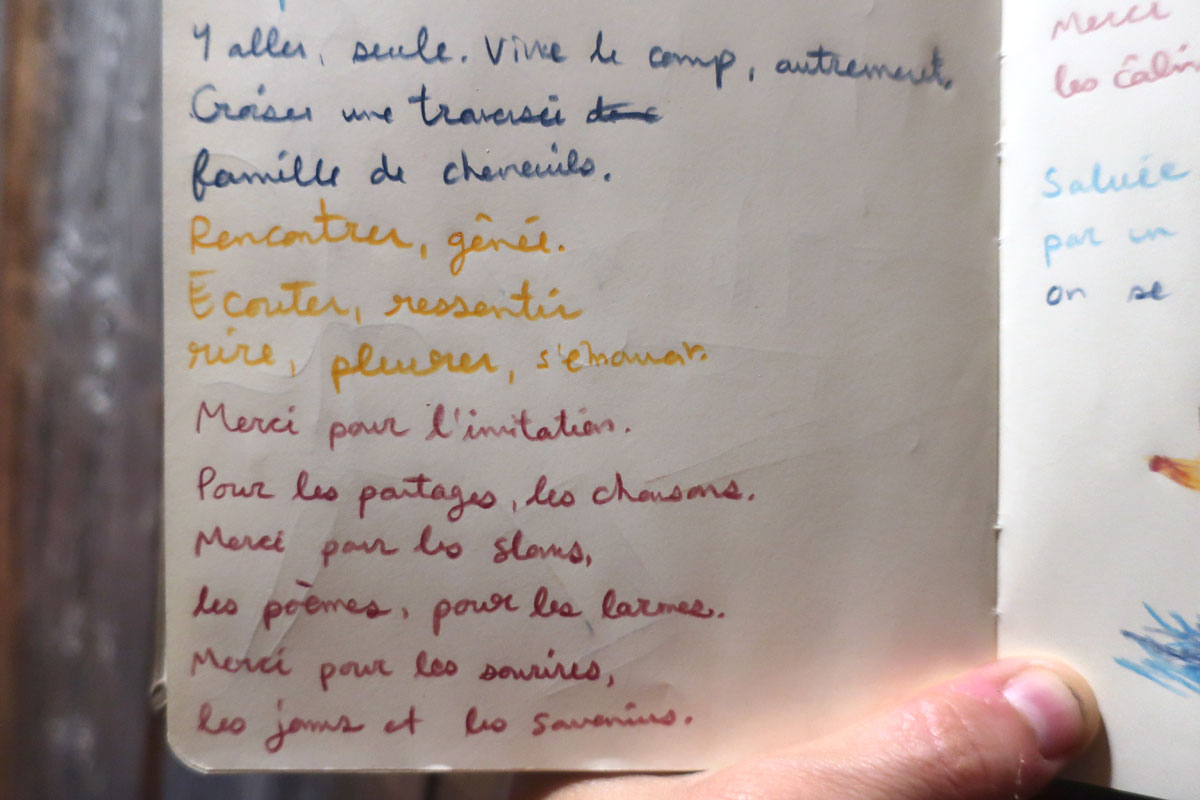 Y aller, seule. Vivre le camp, autrement.
Croiser une traversée
famille de chevreuils.
Rencontrer, gênée.
Écouter, ressentir
rire, pleurer, s'émouvoir.
Merci pour l'invitation.
Pour les partages, les chansons.
Merci pour les slams,
les poèmes, pour les larmes.
Merci pour les sourires,
les jams et les souvenirs.
Merci
les câlin
Saluée
par un
on se